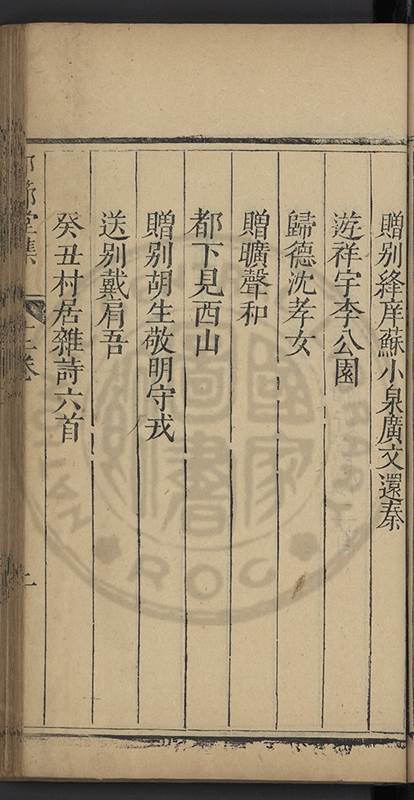 贈別絳庠蘇小泉廣文還秦
遊祥宇李公園
歸德沈孝女
贈曠聲和
都下見西山
贈別胡生敬明守戎
送別戴肩吾
癸丑村居雜詩六首
堂集
卷